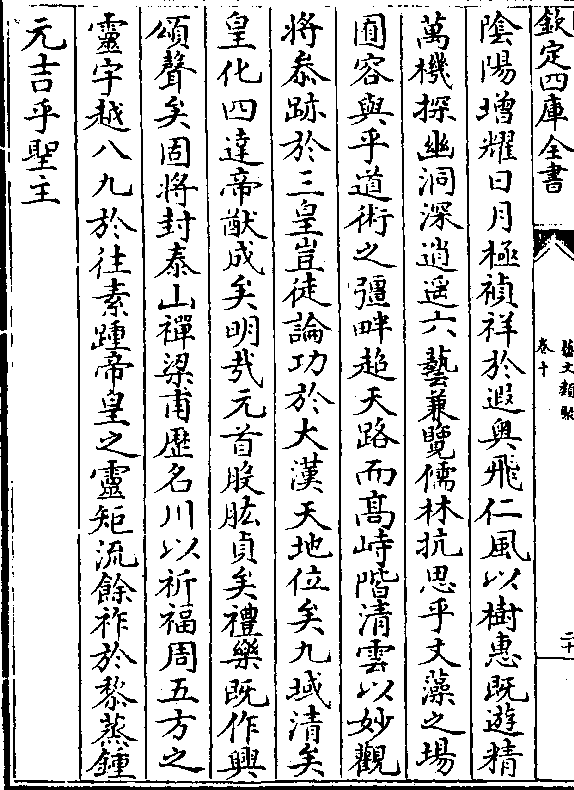 欽定四庫全書
藝文類聚
卷十
二十
陰陽增耀日月極禎祥於遐奥飛仁風以樹惠既遊精
萬機探幽洞深逍遥六藝兼覽儒林抗思乎文藻之場
囿容與乎道術之彊畔超天路而髙峙階清雲以妙觀
將叅跡於三皇豈徒論功於大漢天地位矣九域清矣
皇化四達帝猷成矣明㢤元首股肱貞矣禮樂既作興
頌聲矣固將封泰山禪梁甫歴名川以祈福周五方之
靈宇越八九於往素踵帝皇之靈矩流餘祚於黎蒸鍾
元吉乎聖主